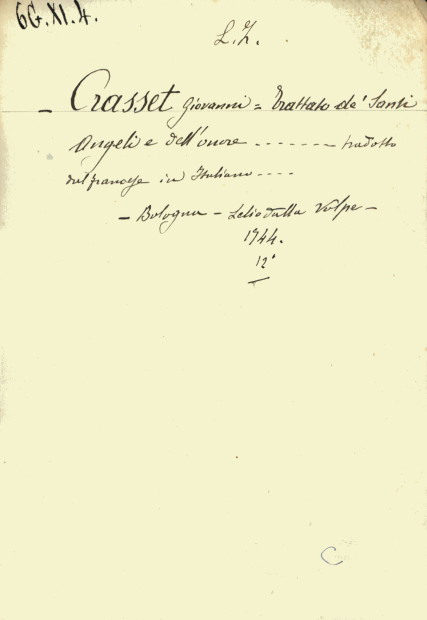 6G.XI.4.
L.Z.
- Crasset Giovanni = Trattato de' Santi
Angeli e dell'onore ------- tradotto
dal francese in Italiano ----
- Bologna - Lelio dalla Volpe -
1744.
12°
C